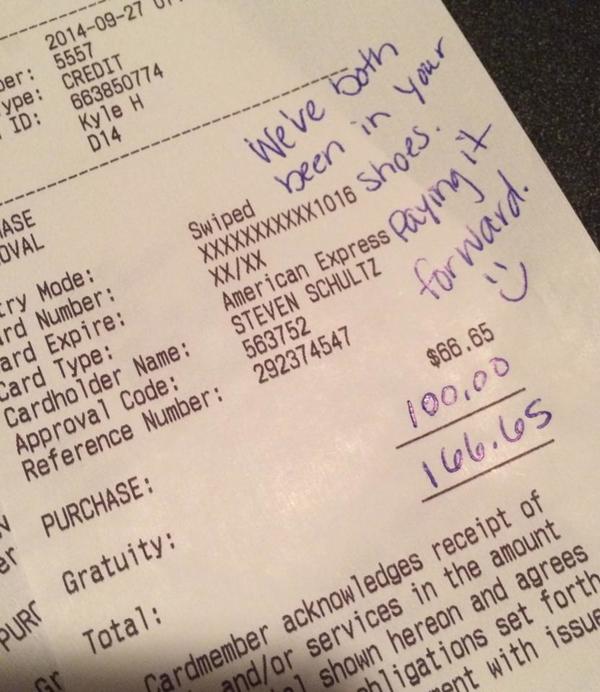 2014-09-27
ber: 5557
ype: CREDIT
ID: 663850774
Kyle H
D14
We've both
been in your
shoes.
Paying it
forward.
HASE
OVAL
try Mode: Swiped
rd Number: XXXXXXXXXXX1016
ard Expire: XX/XX
Card Type: American Express
Cardholder Name: STEVEN SCHULTZ
Approval Code: 563752
Reference Number: 292374547
PURCHASE: $66.65
Gratuity: 100.00
Total: 166.65
Cardmember acknowledges receipt of
and/or services in the amount
shown hereon and agrees
obligations set forth
ment with issue
er
PURC
Gr